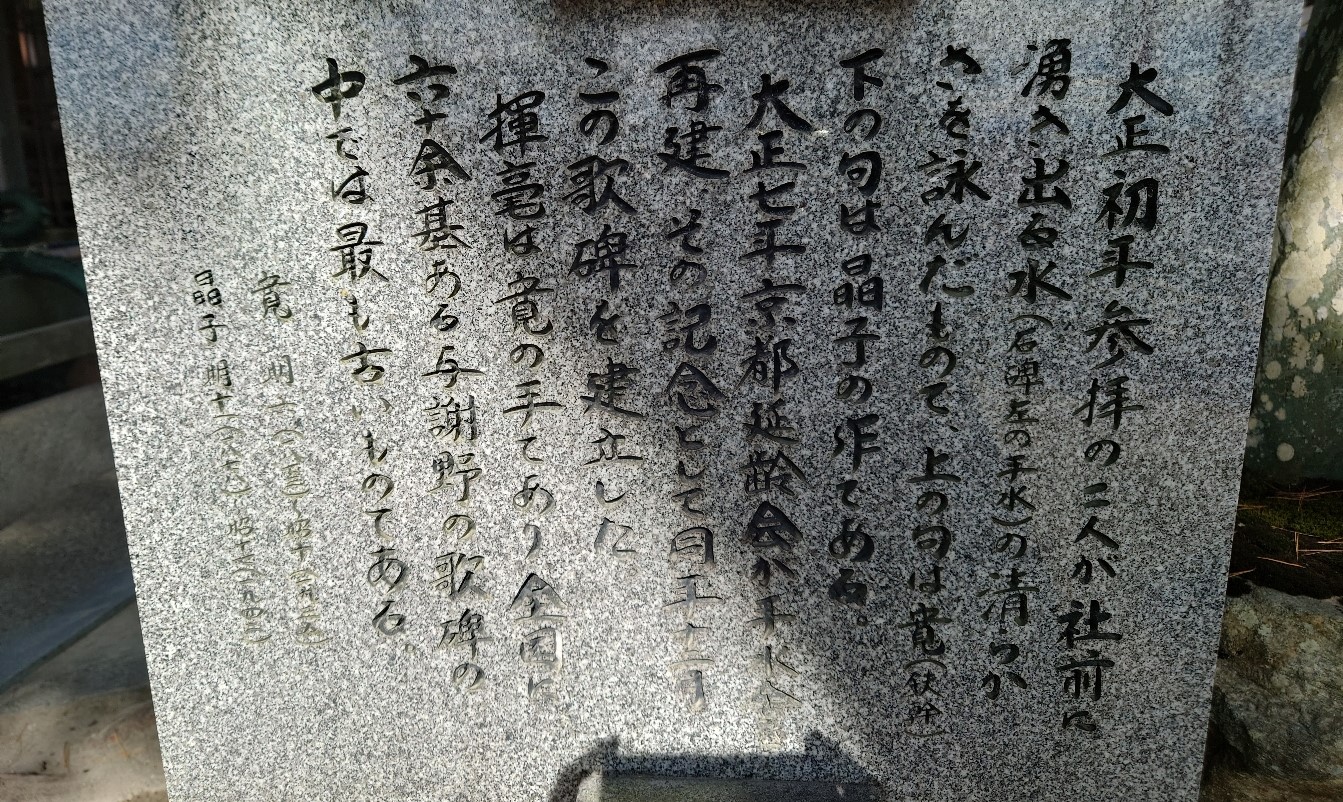 大正初年参拝の二人が社前に
湧き出る水(石碑左の手水)の清らか
さを詠んだもので、上の句は寛(鉄幹)
下の句は晶子の作である。
大正七年京都延齢会が手水舎
再建、その記念として同年十二月
この歌碑を建立した
揮毫は寛の手であり全国に
六十余基ある与謝野の歌碑の
中では最も古いものである。
寛 明
晶子 明十一(一八七八)~昭十七(一九四二)